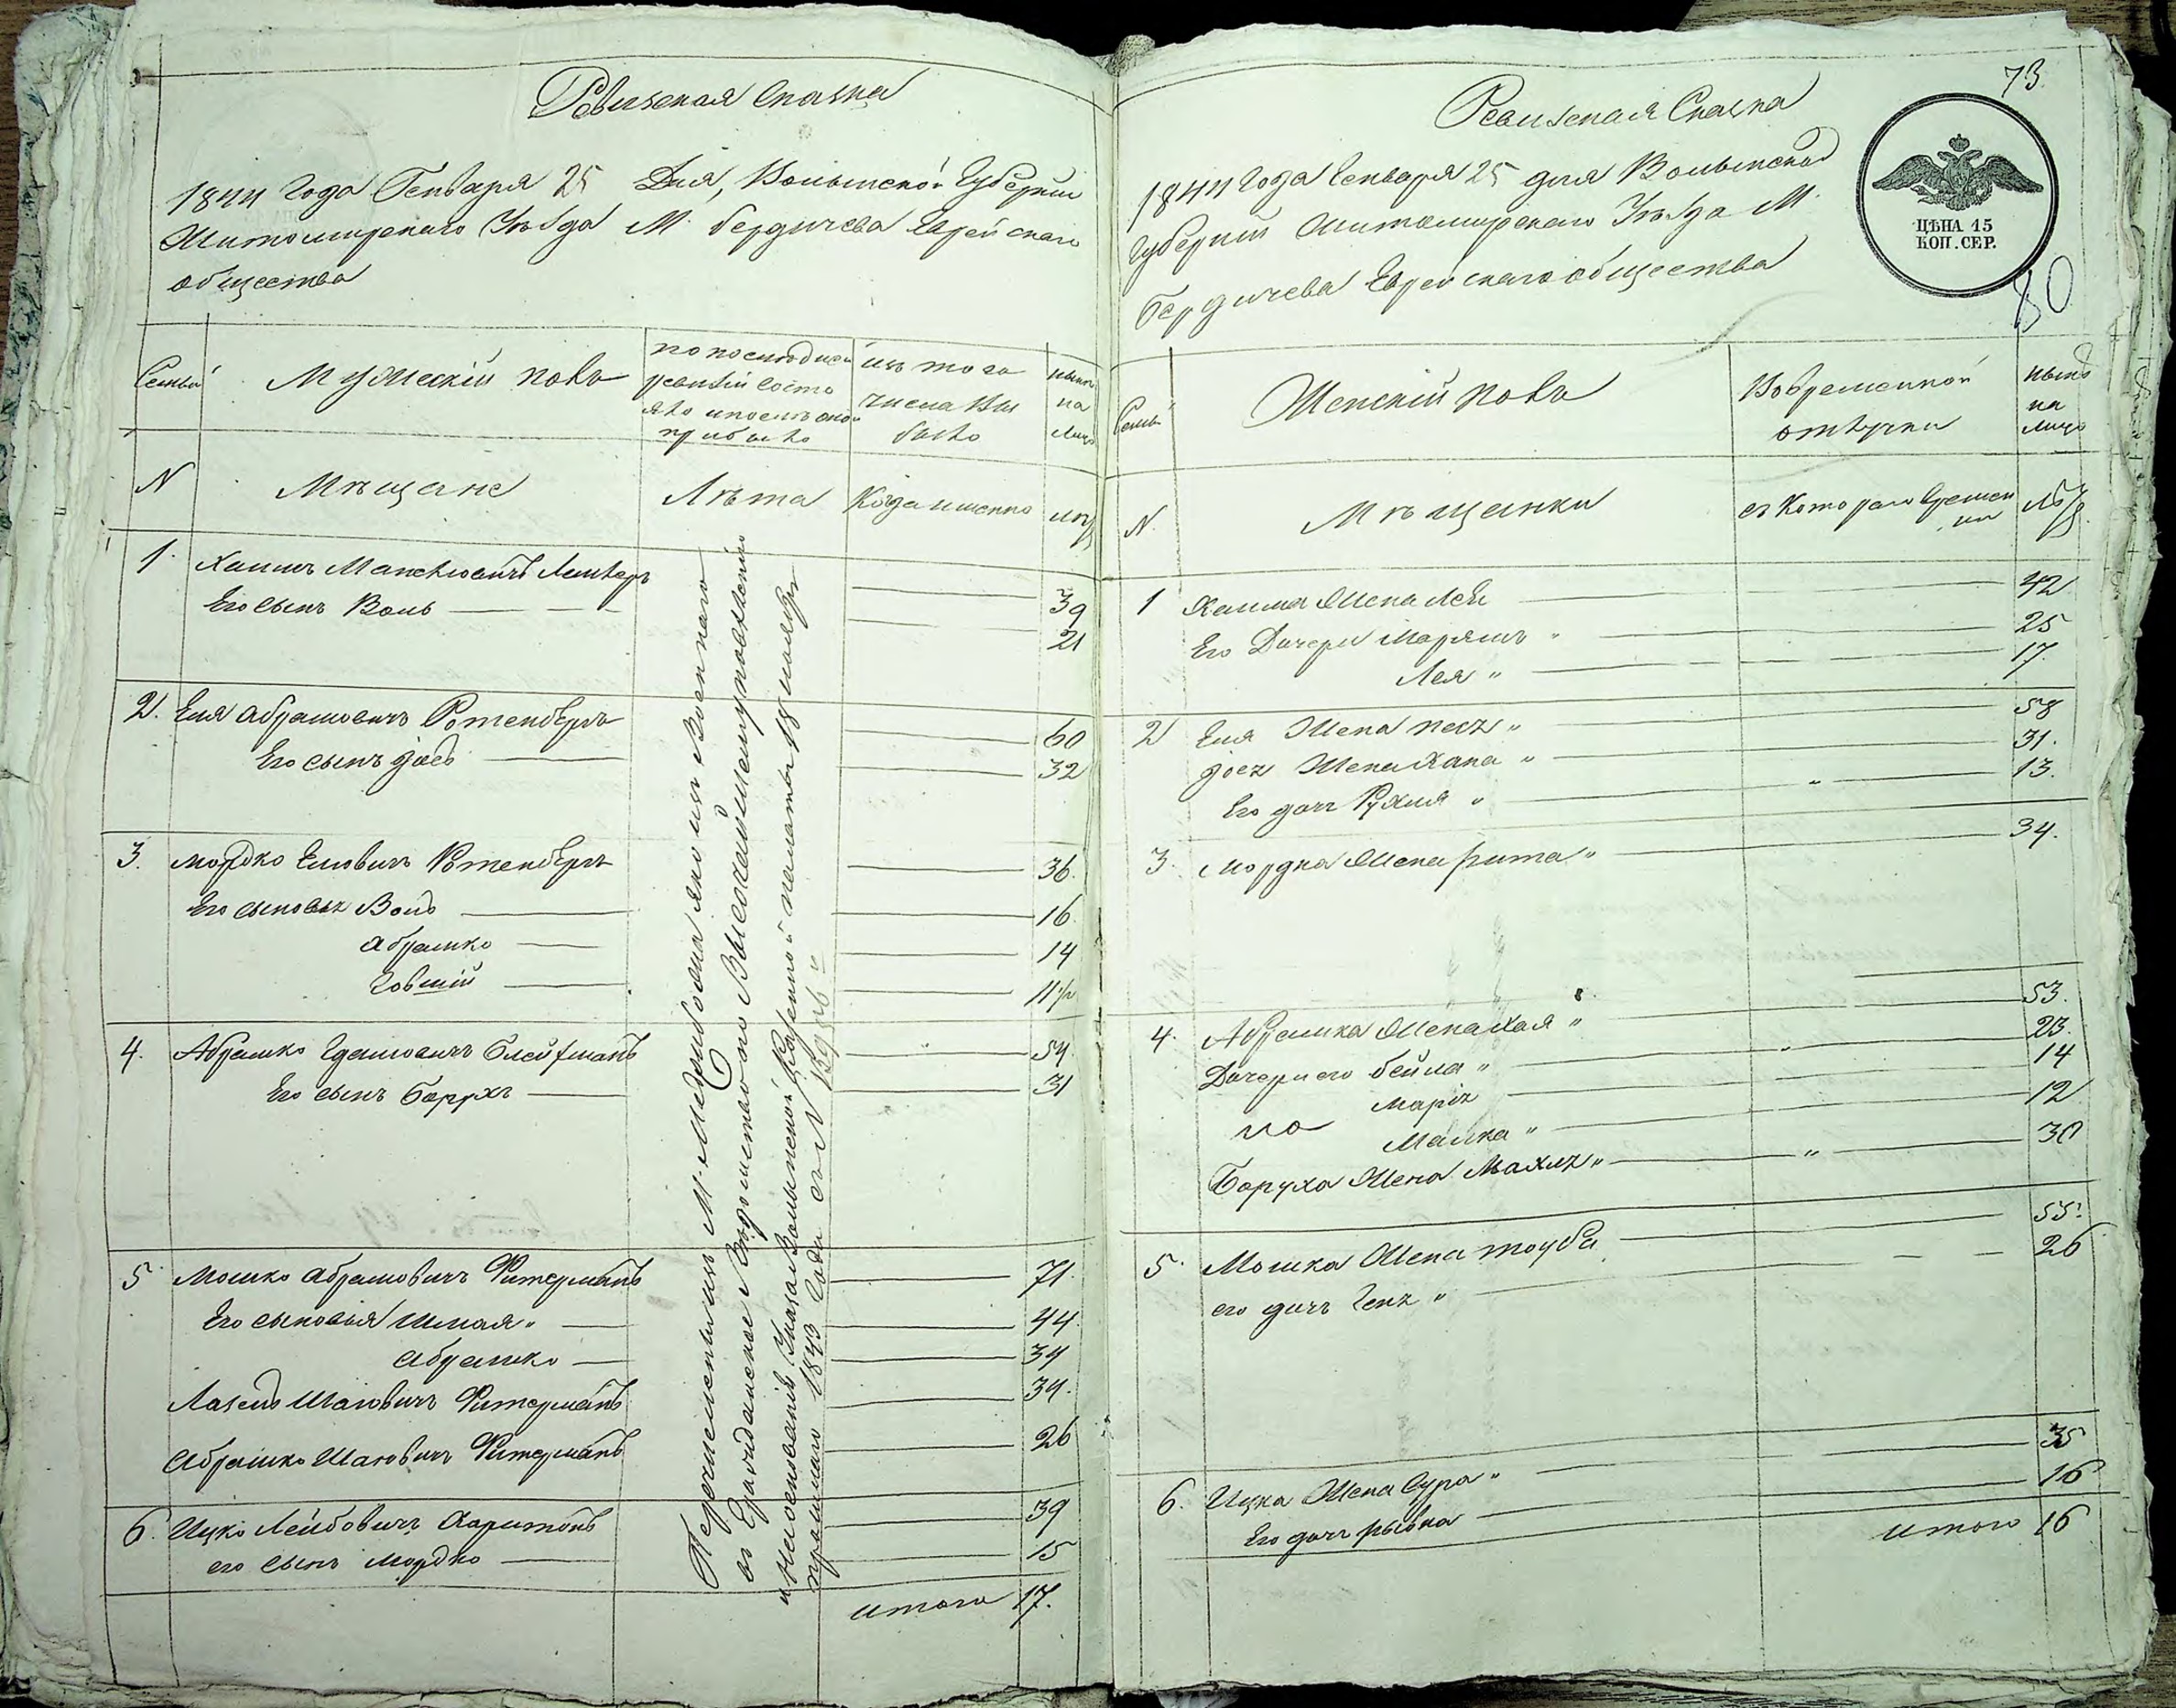 Ревизская Сказка
1844 Года Генваря 25 Дня, Волынской Губернии
Житомирскаго Уѣзда М. Бердичева Еврейскаго
общества
Семьи
Мужескій полъ
по последней
ревизіи состо
яло и после оной
прибыло
изъ того
числа вы
было
ныне
на
лицо
N
Мѣщане
Лѣта
Когда именно
лѣт
1. Хаимъ
Его сынъ Воль 39
21
2. Еля Абрамовичъ Ротенбергъ 60
Его сынъ Іось 32
3. Мордко Елевичъ Ротенбергъ 36.
Его сыновья Воль 16.
Абрамко 14
11 ½
4. Абрамко 54
Его сынъ Борухъ 31
5 Мошко Абрамовичъ Фитерманъ 71.
Его сыновья Шмая 44.
Абрамко 34
Лазель Шаевичъ Фитерманъ 34.
Абрамко Шаевичъ Фитерманъ 26
6. Ицко Лейбовичъ Харитонъ 39
его сынъ Мордко 15
итого 17.
изъ Военнаго
въ Гражданское Ведомство по Высочайшему повелению
Указа Волынской Казенной палаты 18 ноября
прошлаго 1843 Года
73.
Ревизская Сказка
1844 Года Генваря 25 дня Волынской
Губерніи Житомирскаго Уѣзда М.
Бердичева Еврейскаго общества
ЦѢНА 15
КОП. СЕР.
80
Семьи
Женскій полъ
Во временной
отлучки
ныне
на
лицо
N.
Мѣщанки
съ котораго времен
ни
лѣт
1 Хаима Жена Лея 42
Его Дочери Марямъ " 25
Лея " 17.
2 Еля Жена 58
Жена Хана " 31.
Его дочь Рухля " 13.
3. Мордка Жена " 34.
4. Абрамка Жена Хая " 53.
Дочери его Бейла " 23.
14
Малка " 12
Боруха Жена " 30
5. Мошка Жена Тоуба 55.
его дочь " 26
6. Ицка Жена Сура " 35
Его дочь Рывка 16
итого 16